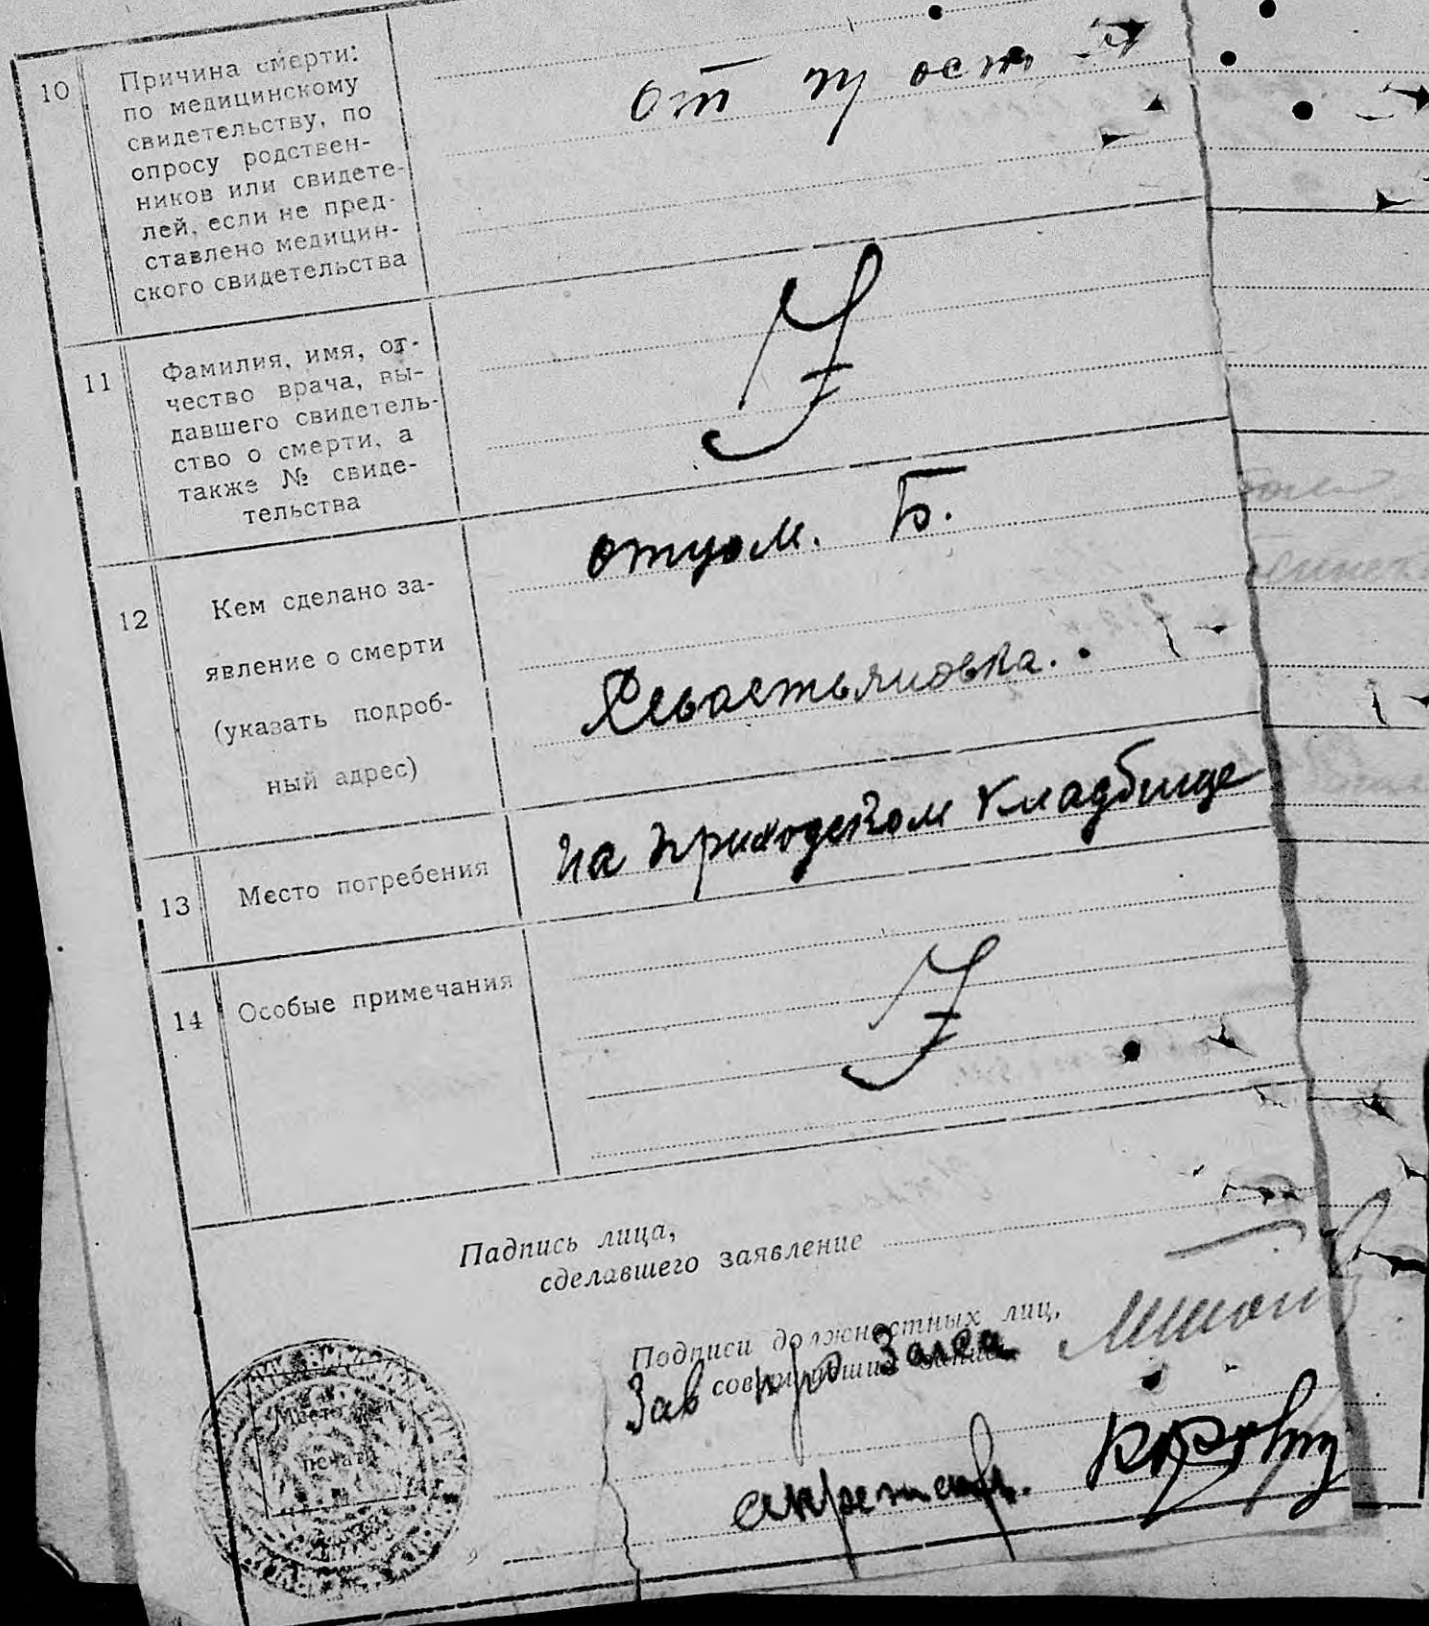 10
Причина смерти:
по медицинскому
свидетельству, по
опросу родствен-
ников или свидете-
лей, если не пред-
ставлено медицин-
ского свидетельства
от
11
Фамилия, имя, от-
чество врача, вы-
давшего свидетель-
ство о смерти, а
также № свиде-
тельства
12
Кем сделано за-
явление о смерти
(указать подроб-
ный адрес)
отцом. Б.
Севастьяновка.
13
Место погребения
на приходском кладбище
14
Особые примечания
Падпись лица,
сделавшего заявление
Подписи должностных лиц,
совершивших запись
Зав бюро Загса
секретарь.
Место для
печати